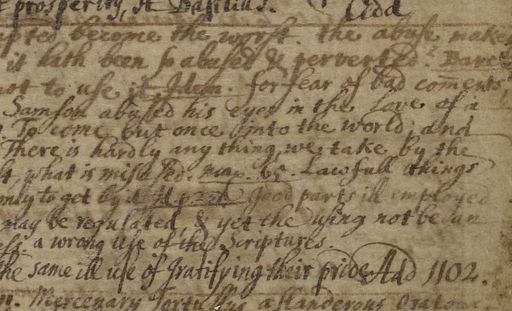 prosperity, St Basilius. Add
become the worst. the abuse makes
it hath been so abused & perverted. Barc
not to use it. Idem. for fear of bad coments,
Samson abused his eyes in the Love of a
To come but once into the world, and
There is hardly any thing we take by the
what is misused. 65. Lawfull things
only to get by it Good parts ill employed
may be regulated, & yet the using not be un
a wrong use of the Scriptures.
the same ill use of Gratifying their pride Add 1102.
Mercenary Tortullus a slanderous Oratour